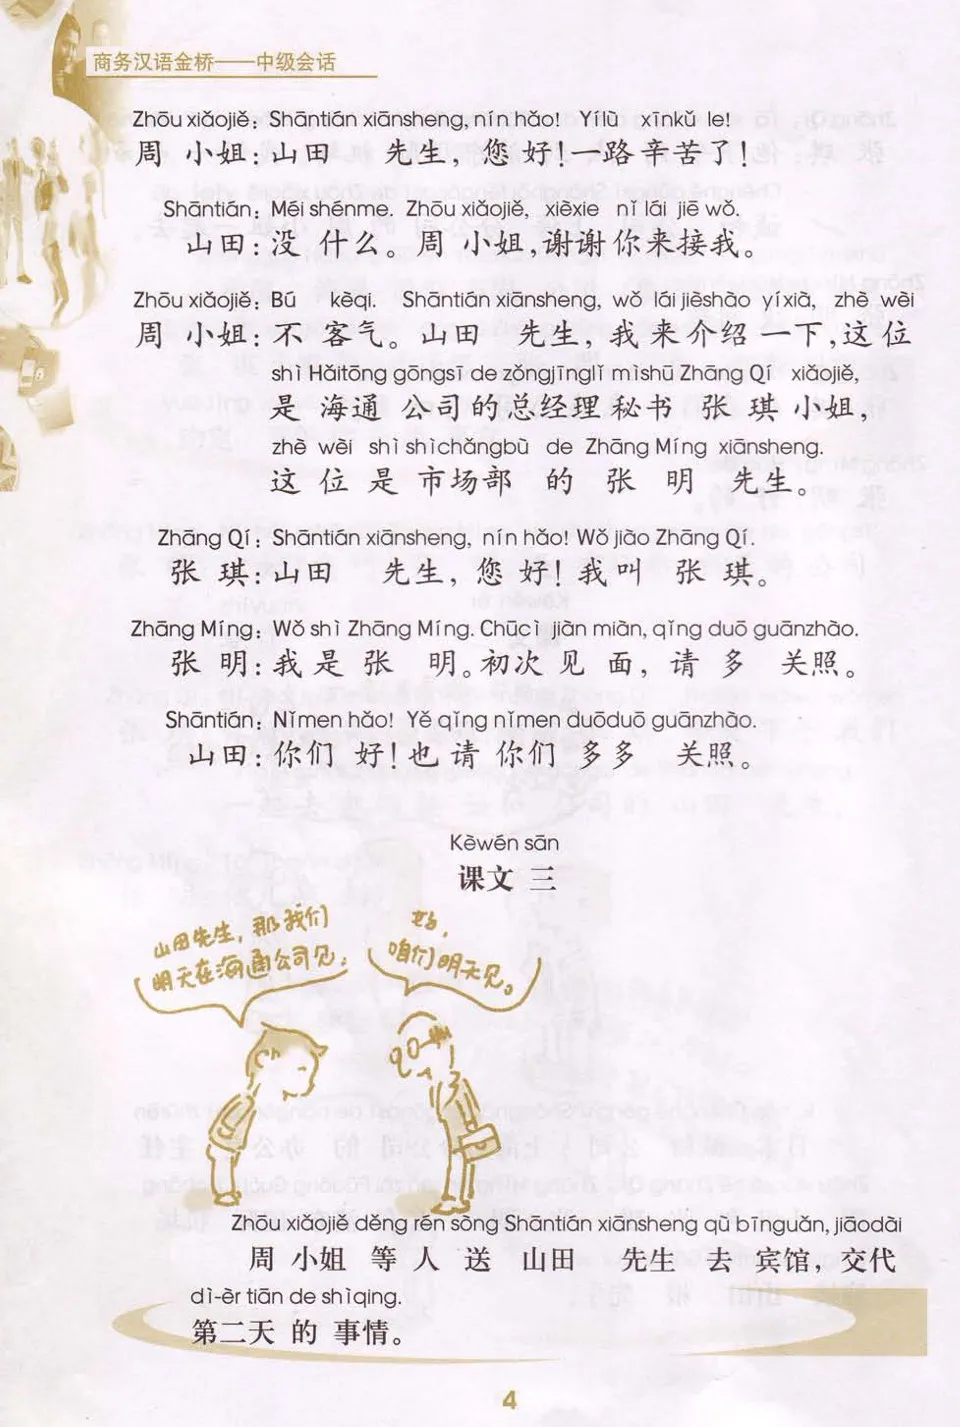 商务汉语金桥——中级会话
Zhōu xiǎojiě: Shāntián xiānsheng, nín hǎo! Yílù xīnkǔ le!
周 小姐：山田 先生，您 好！一路 辛苦了！
Shāntián: Méi shénme. Zhōu xiǎojiě, xièxie nǐ lái jiē wǒ.
山田：没 什么。周 小姐，谢谢你来接我。
Zhōu xiǎojiě: Bú kèqi. Shāntián xiānsheng, wǒ lái jièshào yíxià, zhè wèi
周 小姐：不 客气。山田 先生，我 来 介绍 一下，这 位
shì Hǎitōng gōngsī de zǒngjīnglǐ mìshū Zhāng Qí xiǎojiě,
是 海通 公司的总经理秘书 张 琪 小姐，
zhè wèi shì shìchǎngbù de Zhāng Míng xiānsheng.
这 位 是 市场部 的 张 明 先生。
Zhāng Qí: Shāntián xiānsheng, nín hǎo! Wǒ jiào Zhāng Qí.
张 琪：山田 先生，您 好！我叫 张 琪。
Zhāng Míng: Wǒ shì Zhāng Míng. Chūcì jiàn miàn, qǐng duō guānzhào.
张 明：我 是 张 明。初次 见 面，请 多 关照。
Shāntián: Nǐmen hǎo! Yě qǐng nǐmen duōduō guānzhào.
山田：你们 好！也 请 你们 多多 关照。
Kèwén sān
课文 三
山田先生，那我们
明天在海通公司见。
好，
咱们明天见。
Zhōu xiǎojiě děng rén sòng Shāntián xiānsheng qù bīnguǎn, jiāodài
周 小姐 等 人 送 山田 先生 去 宾馆，交代
dì-èr tiān de shìqing.
第二天 的 事情。
4